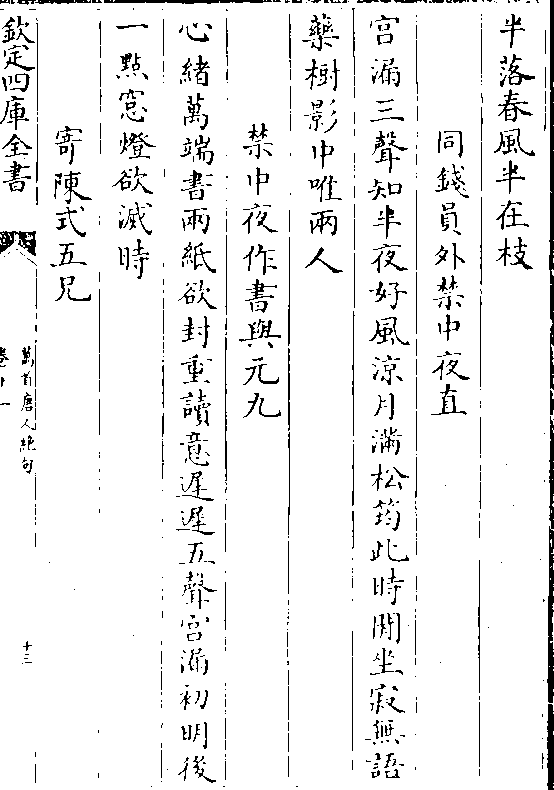 半落春風半在枝
同錢員外禁中夜直
宫漏三聲知半夜好風涼月滿松筠此時閒坐寂無語
藥樹影中唯兩人
禁中夜作書與元九
心緒萬端書兩紙欲封重讀意遲遲五聲宫漏初明後
一點窓燈欲滅時
寄陳式五兄
欽定四庫全書
萬首唐人絶句
卷十一
十三